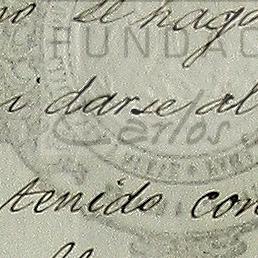 no se haga
FUNDAC
i darse al
Carlos
tenido con